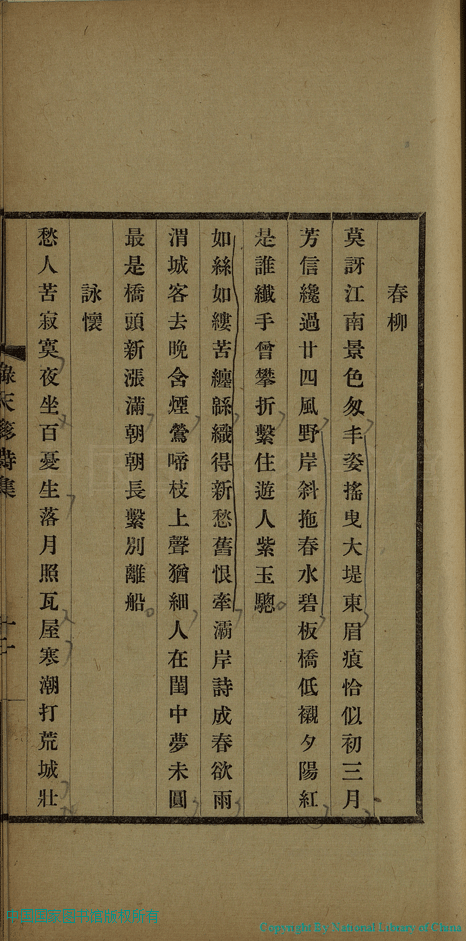 春柳
莫訝江南景色匆丰姿搖曳大堤東眉痕恰似初三月
芳信纔過廿四風野岸斜拖春水碧板橋低襯夕陽紅
是誰纖手曾攀折繫住遊人紫玉驄
如絲如縷苦纏緜織得新愁舊恨牽灞岸詩成春欲雨
渭城客去晚含煙鶯啼枝上聲猶細人在閨中夢未圓
最是橋頭新漲滿朝朝長繫別離船
詠懷
愁人苦寂寞夜坐百憂生落月照瓦屋寒潮打荒城壯
天 詩集
Copyright By National Library of China